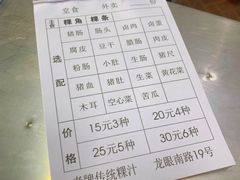 堂食 外卖 份
主食 粿角 粿条
选配
猪肠 肠头 卤肉 卤蛋
腐皮 豆干 腊肠 卤肉
粉肠 小肚 生肠 猪尺
猪血 猪肚 生菜 黄花菜
木耳 空心菜 苦瓜
价格
15元3种 20元4种
25元5种 30元6种
老牌传统粿汁 龙眼南路19号